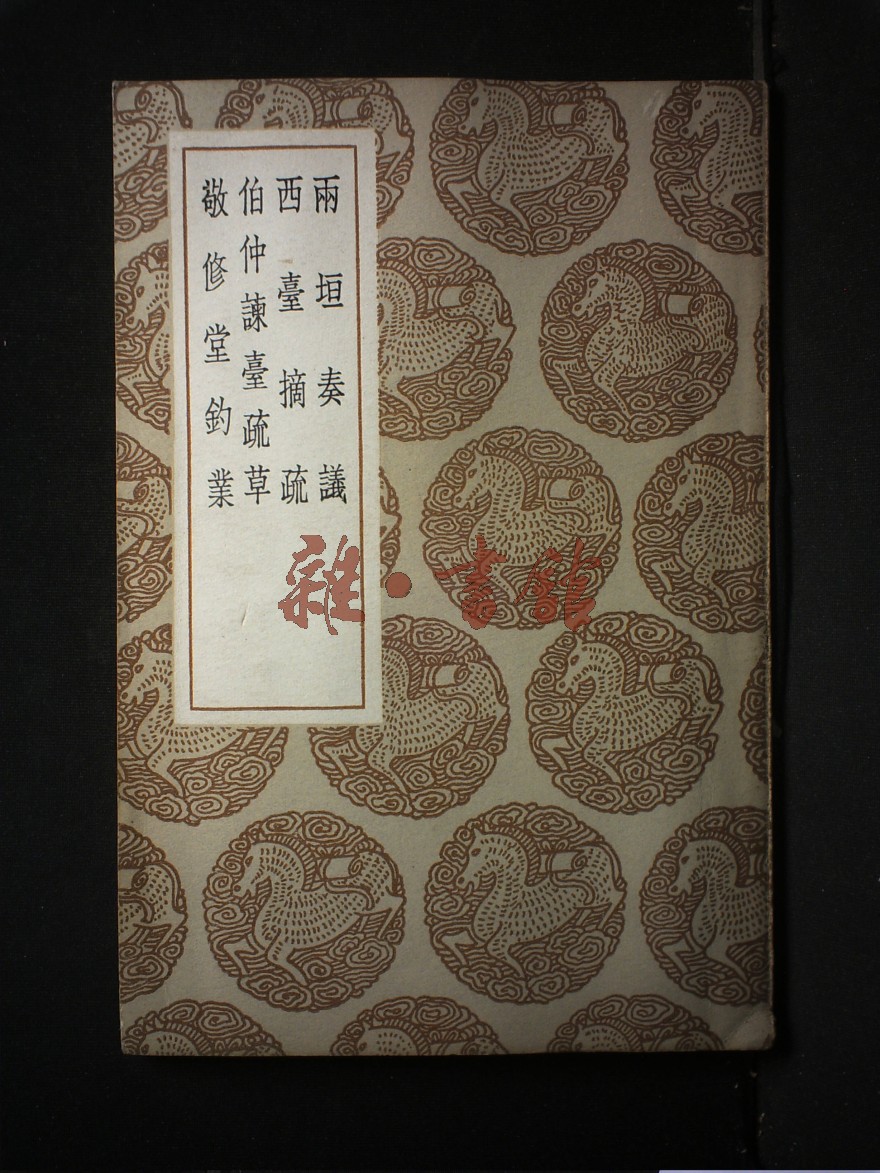 兩垣奏議
西臺摘疏
伯仲諫臺疏草
敬修堂釣業
雜·書館